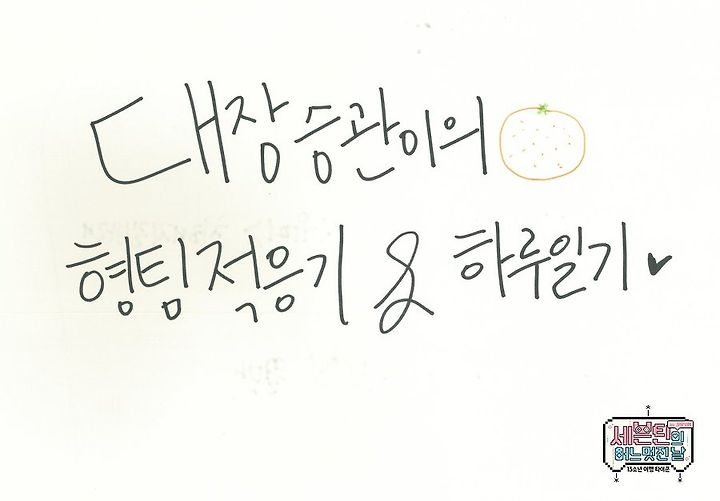 대장 승관이의
형팀 적응기 & 하루일기
세븐틴의
어느 멋진 날
13소년 여행 타이쿤